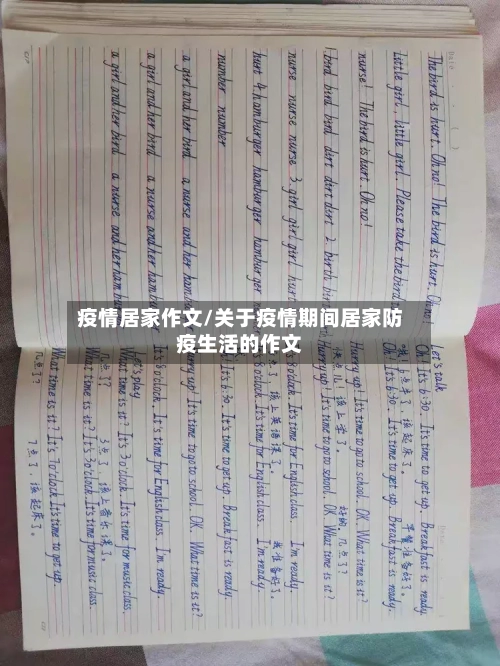 The bird is hurt. Oh no! The bird is hurt. Oh no!
Little girl, little girl. Please take the bird
nurse! The bird is hurt. Oh no!
1. bird bird bird dirt dirt dirt 2. birth birth
nurse nurse nurse 3. girl girl girl hurt
hurt 4. hamburger hamburger hamburger
number number
a girl and her bird a nurse and her hamb
a girl and her bird a nurse and her hamb
a girl and her bird a nurse and her ham
疫情居家作文/关于疫情期间居家防
疫生活的作文
Let's talk
Oh! It's 6:30. It's time to get up. Breakfast is ready.
6点半了,该起床了。早餐准备好了。
Ok! It's 6:30. It's time to get up. Breakfast is ready.
Hurry up! It's time to go to school. OK. What time is it?
快点儿,该上学了。好的,几点了?
Hurry up! It's time to go to school. OK. What time is it?
8 o'clock. It's time for English class. I'm ready.
该上英语课了。我准备好了。
8 o'clock. It's time for English class. I'm ready.
It's 6:30. It's time to get up. Breakfast is ready.
Hurry up! It's time to go to school. OK. What time is it?
It's 8 o'clock. It's time for English class. I'm ready.
Let's play
What time is it? It's 3 o'clock. It's time for music class.
几点了?3点了,该上音乐课了。
What time is it? It's 3 o'clock. It's time for music class.
What time is it? It's 7 o'clock. It's time to get up.
几点了?7点了,该起床了。